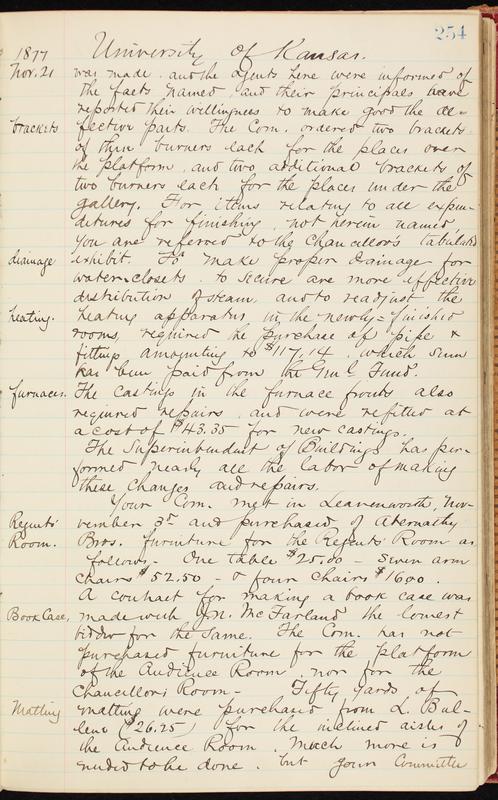 254
1877 University of Kansas.
Nov. 21 was made, and the agents here were informed of
the facts named, and their principals have
reported their willingness to make good the de=
brackets fective parts. The Com. ordered two brackets
of three burners each for the places over
the platform, and two additional brackets of
two burners each for the places under the
gallery. For items relating to all expen-
ditures for finishing, not herein named,
you are referred to the Chancellors tabulated
drainage exhibit. To make proper drainage for
water-closets to secure a more effective
distribution of steam, and to readjust the
heating. heating apparatus in the newly=finished
rooms, required the purchase of pipe &
fitting amounting to $117,14, which sum
has been paid from the Fund.
furnaces. The castings in the furnace fronts also
required repairs, and were refitted at
a cost of $43.35 for new castings.
The Superintendent of Buildings has per-
formed nearly all the labor of making
these changes and repairs.
Your Com. met in Leavenworth, Nov-
Regents' vember 3d and purchased of Abernathy
Room. Bros. furniture for the Regents' Room as
follows - One table $25.00 - Seven arm
chairs $52.50 - & four chairs $1600.
A contract for making a book case was
Book Case, made with Wm. McFarland the lowest
bidder for the same. The Com. has not
purchased furniture for the platform
of the Audience Room, nor for the
Chancellors Room - Fifty yards of
Matting matting were purchased from L. Bul-
lene ($26.25) for the inclined aisles of
the Audience Room. Much more is
needed to be done, but your Committee